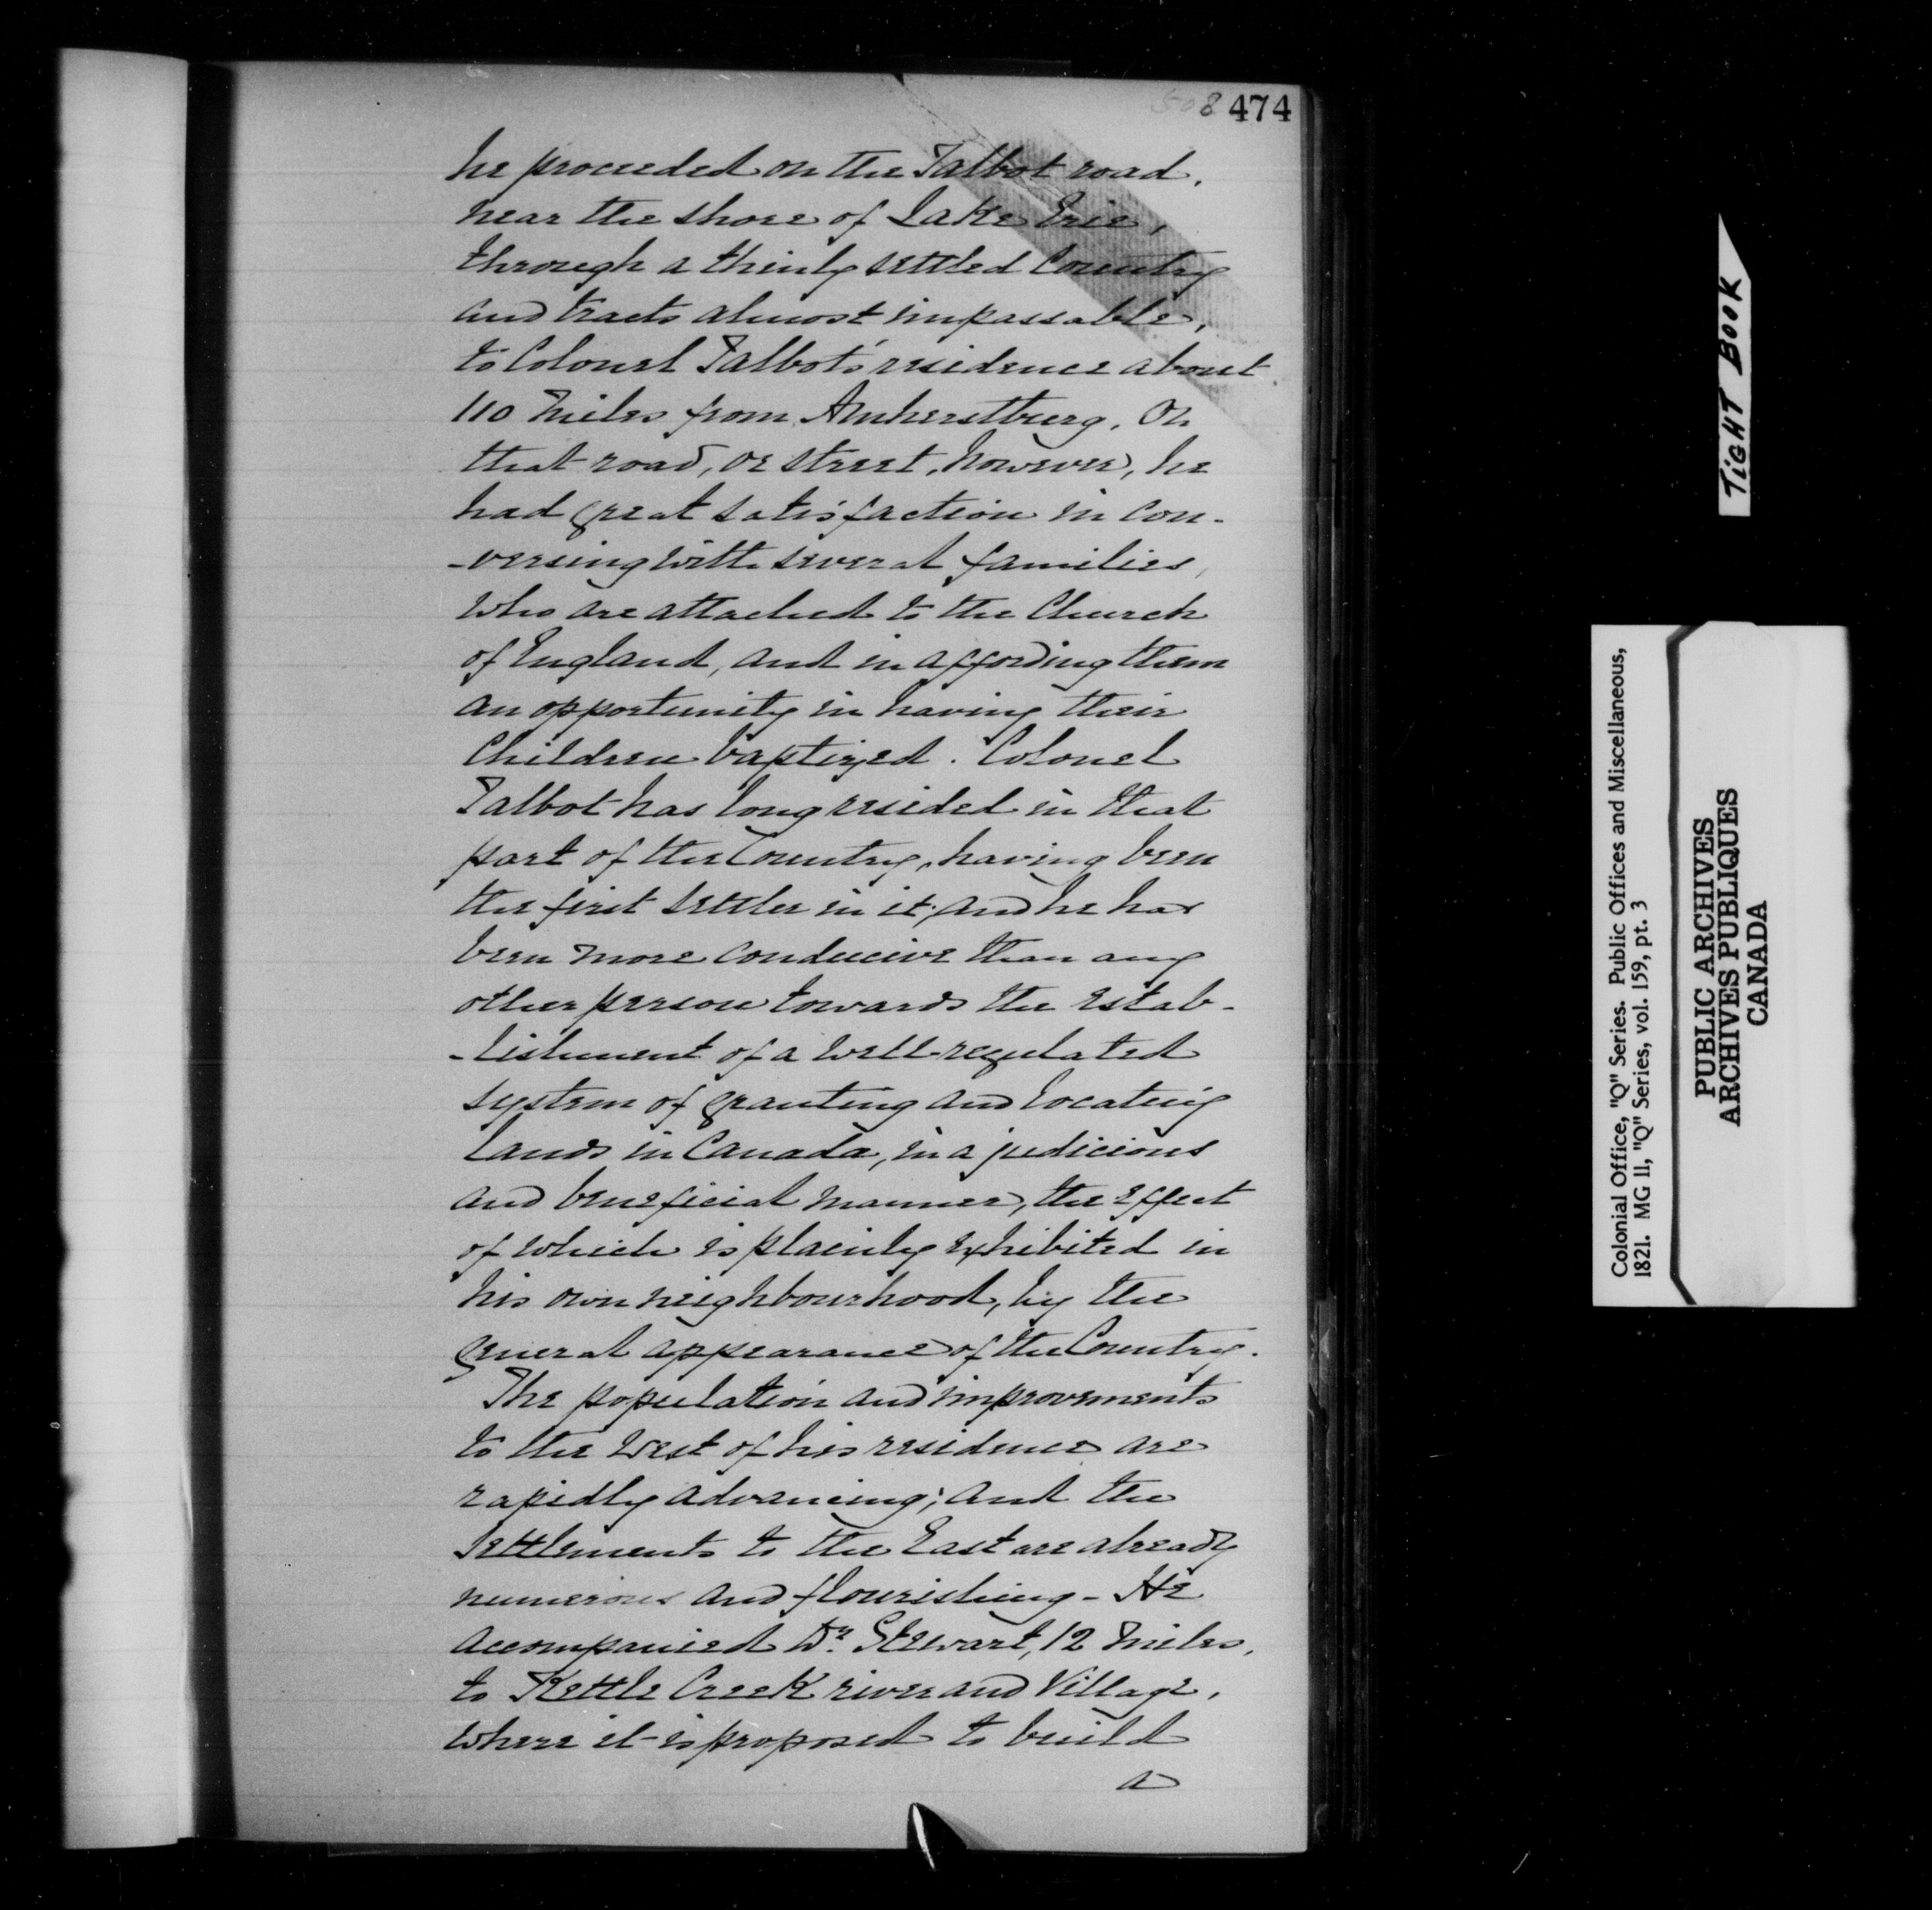 508 474
he proceeded on the Talbot road,
near the shore of Lake Erie,
through a thinly settled Country
and tracts almost impassable,
to Colonel Talbot's residence about
110 Miles from Amherstburg. On
that road, or street, however, he
had great satisfaction in con-
-versing with several families,
who are attached to the Church
of England, and in affording them
an opportunity in having their
Children baptized. Colonel
Talbot has long resided in that
part of the Country, having been
the first settler in it; and he has
been more conducive than any
other person towards the estab-
-lishment of a well-regulated
system of granting and locating
lands in Canada, in a judicious
and beneficial manner, the effect
of which is plainly exhibited in
his own neighbourhood, by the
general appearance of the Country.
The population and improvements
to the West of his residence are
rapidly advancing; and the
Settlements to the East are already
numerous and flourishing - He
accompanied Dr. Stewart, 12 Miles,
to Kettle Creek river and Village,
where it is proposed to build
a
TIGHT BOOK
Colonial Office, "Q" Series. Public Offices and Miscellaneous,
1821. MG 11, "Q" Series, vol. 159, pt. 3
PUBLIC ARCHIVES
ARCHIVES PUBLIQUES
CANADA